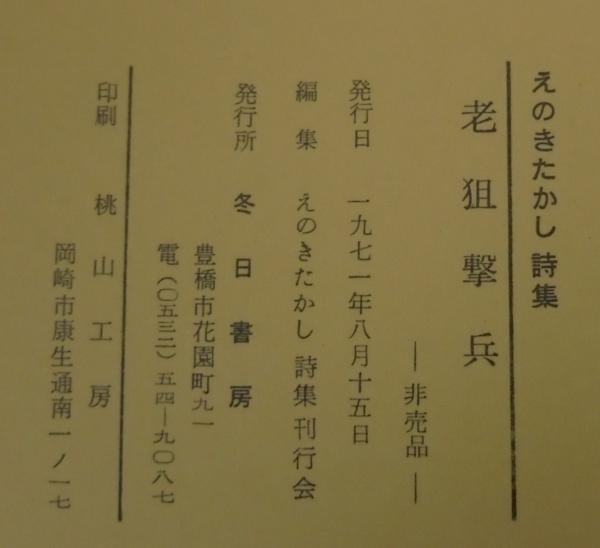 えのきたかし 詩集
老狙撃兵
― 非売品 ―
発行日 一九七一年八月十五日
編集 えのきたかし 詩集刊行会
発行所 冬日書房
豊橋市花園町九一
電(〇五三二)五四―九〇八七
印刷 桃山工房
岡崎市康生通南一ノ一七